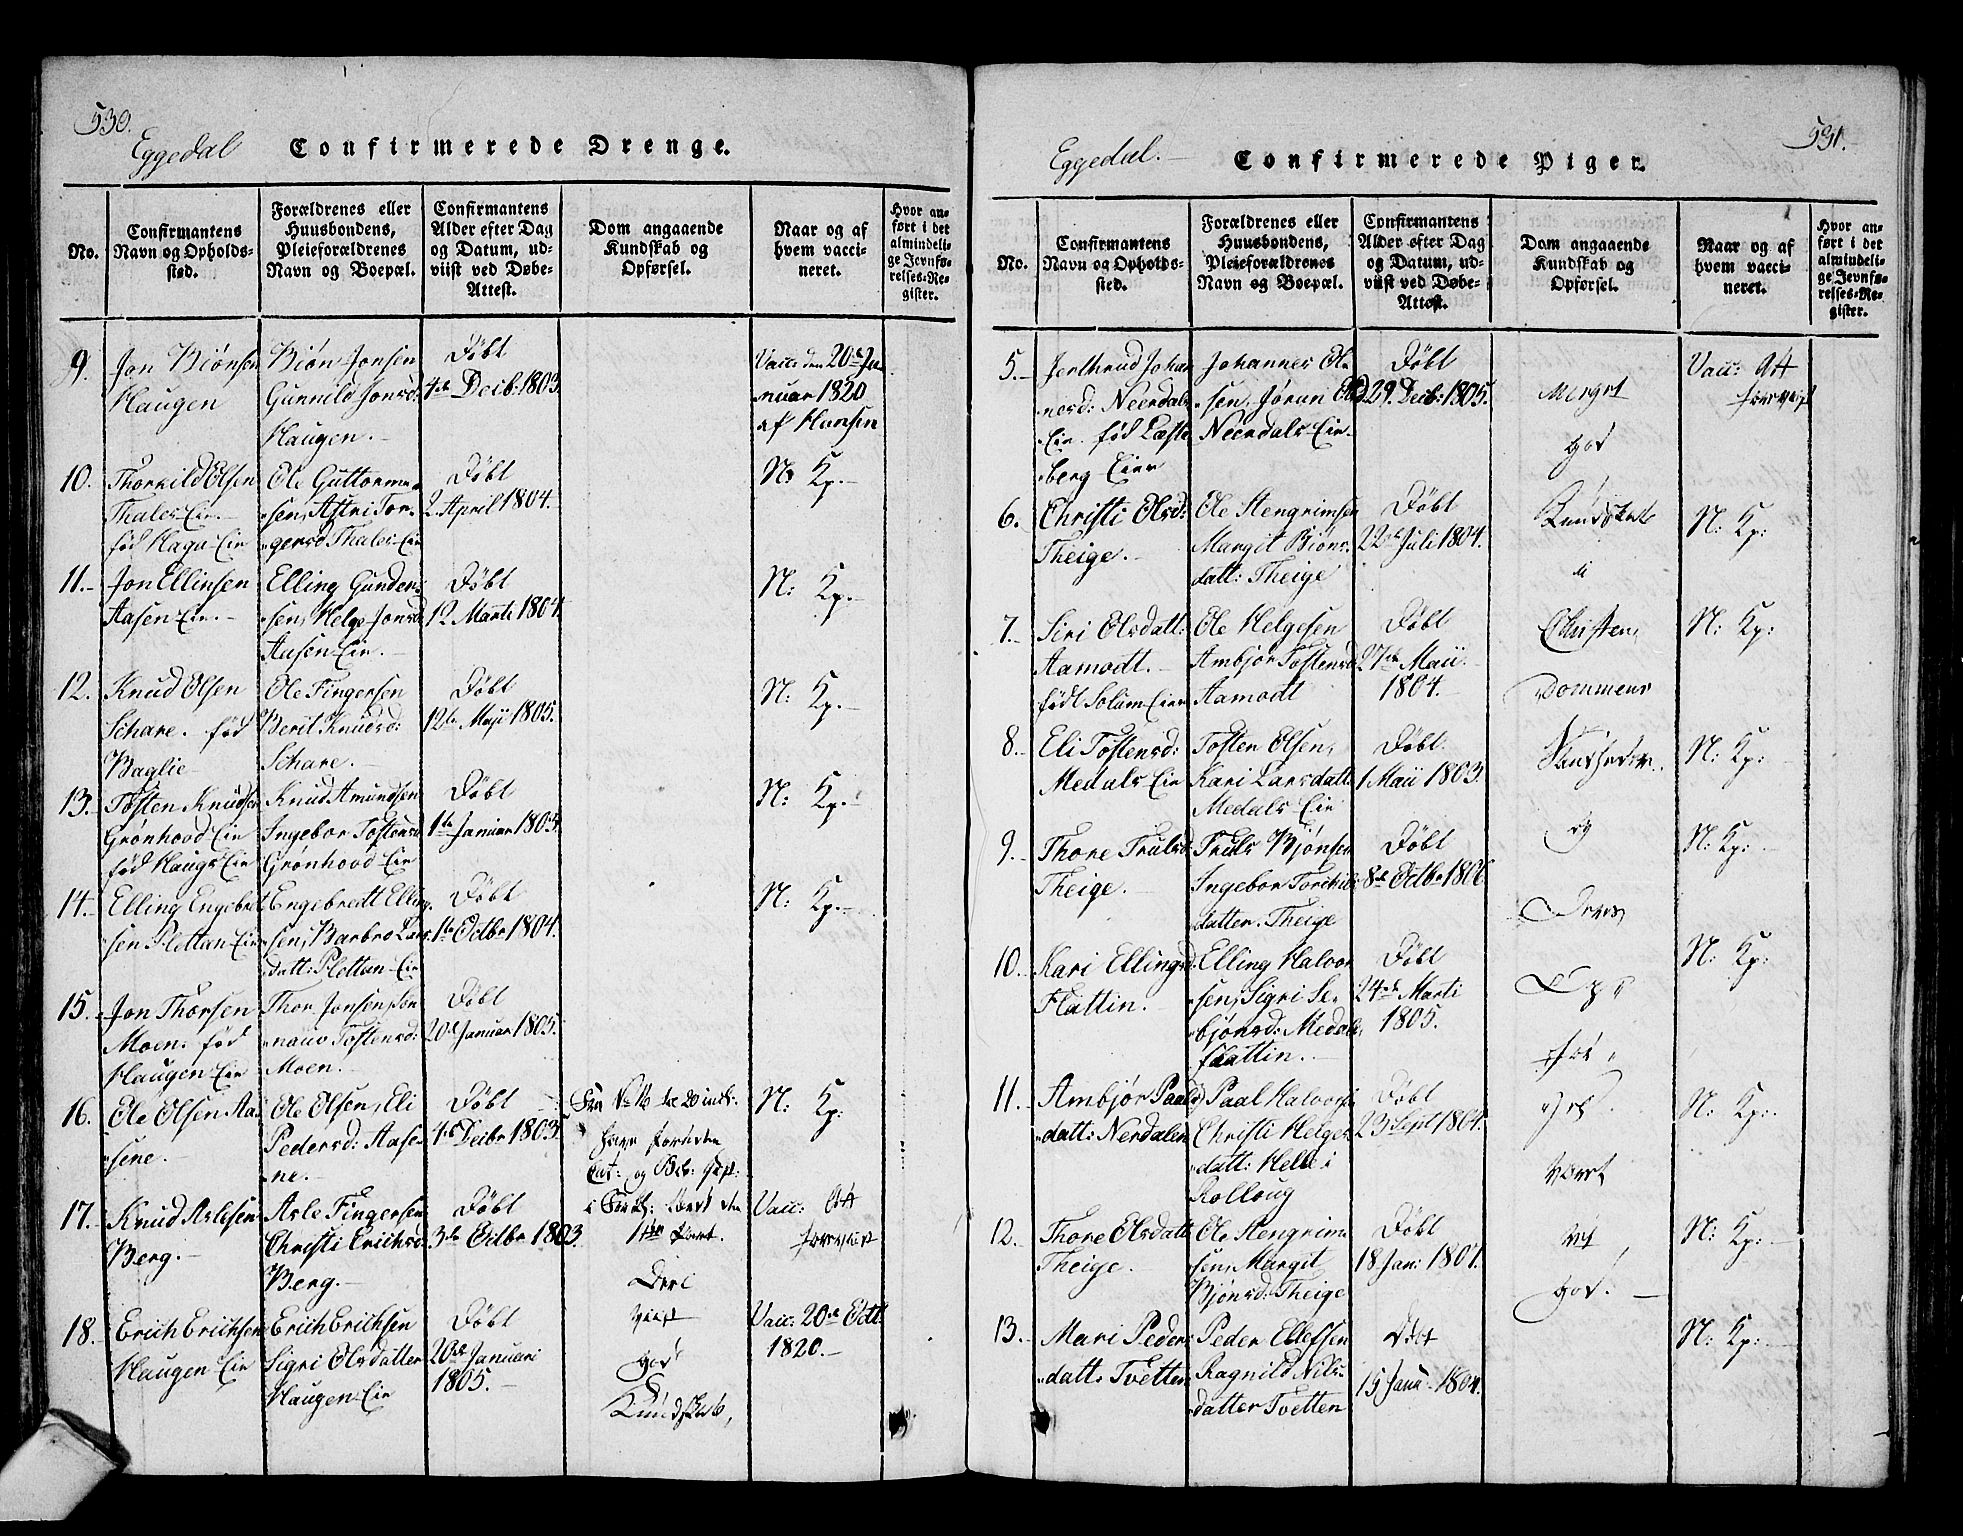 530.
Eggedal
Confirmerede Drenge.
No.
Confirmantens
Navn og Opholds-
sted.
Forældrenes eller
Huusbondens,
Pleieforældrenes
Navn og Boepæl.
Confirmantens
Alder efter Dag
og Datum, ud-
viist ved Døbe-
Attest.
Dom angaaende
Kundskab og
Opførsel.
Naar og af
hvem vacci-
neret.
Hvor an-
ført i det
almindeli-
ge Jevnfø-
relses-Re-
gister.
9.
Jon Biønsen
Haugen
Biøn Jonsen
Gunnild Jonsd:
Haugen.
Døbt
4de Decb. 1803.
Vacc: den 20de Ja
nuar 1820
af Hansen
10.
Thorkild Olsen
Thales Eie.
fød Haga Eie
Ole Guttorm
sen, Astri Tor
gersd Thales Eie
Døbt
2. April 1804.
N: Kp.
11.
Jon Ellinsen
Aasen Eie.
Elling Gunder
sen, Helge Jonsd
Aasen Eie.
Døbt
12 Marti 1804.
N: Kp.
12.
Knud Olsen
Schare. fød
Baglie
Ole Fingersen
Berit Knudsd:
Schare.
Døbt
12te Maji 1805.
N: Kp.
13.
Tosten Knudsen
Grønhood Eie
fød Haugs Eie
Knud Amundsen
Ingebor Tostensd
Grønhood Eie
Døbt
1te Januar 1805.
N: Kp.
14.
Elling Engebret
sen Plettan Eie
Engebredt Elling
sen, Barbro Lars
datt: Plettan Eie
Døbt
1te Octbr 1804.
N: Kp.
15.
Jon Thorsen
Moen. fød
Haugen Eie
Thor Jonsen,
Tostensd:
Moen.
Døbt
20de Januar 1805.
16.
Ole Olsen Aa
sene.
Ole Olsen, Eli
Pedersd: Aase
ne.
Døbt
4de Decbr 1803.
Fra No 16 til 20 incl:
N: Kp:
17.
Knud Aslesen
Berg.
Asle Fingersen
Christi Erichsd:
Berg.
Døbt
3de Octbr 1803.
Vacc: Att
foreviist
18.
Erich Erichsen
Haugen Eie
Erich Erichsen
Sigri Olsdatter
Haugen Eie
Døbt
20de Januari
1805.
god
Kundskab,
Vacc: 20de Octb:
1820.
531.
Eggedal.
Confirmerede Piger.
No.
Confirmantens
Navn og Opholds-
sted.
Forældrenes eller
Huusbondens,
Pleieforældrenes
Navn og Boepæl.
Confirmantens
Alder efter Dag
og Datum, ud-
viist ved Døbe-
Attest.
Dom angaaende
Kundskab og
Opførsel.
Naar og af
hvem vacci-
neret.
Hvor an-
ført i det
almindeli-
ge Jevnfø-
relses-Re-
gister.
5.
Jerthrud Johan
nesd: Neerdals
Eie. fød Læste
berg Eier
Johannes Ol
sen, Jørun
Neerdals Eie.
Døbt
29. Decb: 1805.
Meget
god
Kundskab
i
Christen,
Dommens
Sandheder,
og
Deres
Opf
før
sel
været
god.
Vacc: Att
foreviist
6.
Christi Olsd:
Theige.
Ole Stengrimsen
Margit Biøns
datt: Theige
Døbt
22de Juli 1804.
N: Kp:
7.
Siri Olsdatt:
Aamodt.
født Solum Eier
Ole Helgesen
Ambjør Tostensd
Aamodt
Døbt
27de Maii
1804.
N: Kp:
8.
Eli Tostensd:
Medals Eie
Tosten Olsen,
Kari Larsdatt:
Medals Eie
Døbt.
1 Maii 1803.
N: Kp:
9.
Thore Trulsd
Theige.
Truls Bjønsen
Ingebor Torchils
datter. Theige
Døbt
8de Octbr 1806
N: Kp:
10.
Kari Ellingsd
Flattin.
Elling Halvor
sen, Sigri Se
bjønsd: Medals
flattin.
Døbt
24de Marti
1805.
N: Kp:
11.
Ambjør Paals
datt: Nerdalen
Paal Halvorsen
Christi Helges
datt: Helle i
Rolloug
Døbt
23 Sept 1804.
N: Kp:
12.
Thore Olsdatt
Theige.
Ole Stengrim
sen, Margit
Bjønsd: Theige
Døbt
18 Jan: 1807.
N: Kp:
13.
Mari Peders
datt: Tvetten
Peder Ellefsen
Ragnild Nils
datter Tvetten
Døbt
15 Janu 1804.
N: Kp: